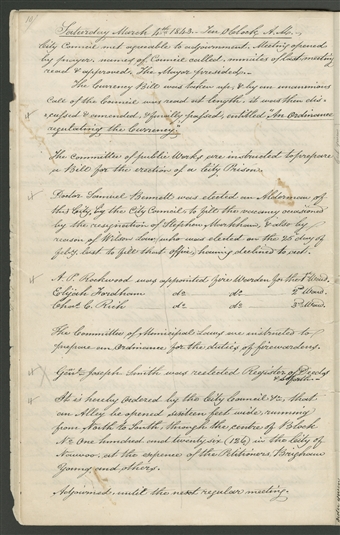 Saturday March 4th. 1843. Ten O'Clock, A.M.
City Council met agreeable to adjournment. Meeting opened
by prayer. names of Council called. minutes of last meeting
read & approved. The Mayor presided.
The Currency Bill was taken up, & by an unanimous
Call of the Council was read at length. it was then dis-
cussed & amended, & finally passed, entitled "An Ordinance
regulating the Currency."
The committee of public Works are instructed to prepare
a Bill for the erection of a City Prison.
Doctor Samuel Bennett was elected an Alderman of
this City, by the City Council to fill the vacancy occasioned
by the resignation of Stephen Markham, & also by
reason of Wilson Law, who was elected on the 25 day of
July last to fill that office, having declined to act.
A. P. Rockwood was appointed fire Warden for the 1st Ward.
Elijah Fordham do do 2d Ward.
Chas. C. Rich do do 3d Ward.
The Committee of Municipal Laws are instructed to
prepare an Ordinance for the duties of firewardens.
Genl. Joseph Smith was reelected Register of Deeds
It is hereby ordered by the City Council &c, that
an Alley be opened sixteen feet wide, running
from North to South through the centre of Block
No. One hundred and twenty six (126) in the City of
Nauvoo. at the expense of the Petitioners, Brigham
Young and others.
Adjourned until the next regular meeting.